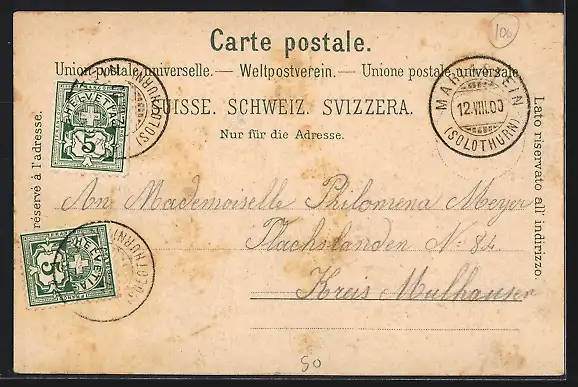 100
Carte postale.
Union postale universelle. — Weltpostverein. — Unione postale universale
SUISSE. SCHWEIZ. SVIZZERA.
Nur für die Adresse.
réservé à l'adresse.
Lato riservato all' indirizzo.
MARIASTEIN
12.VIII.00
(SOLOTHURN)
HELVETIA
5
FRANCO
(SOLOTHURN)
HELVETIA
5
FRANCO
(SOLOTHURN)
An Mademoiselle Philomena Meyer
Flachslanden N: 84
Kreis Mulhausen
50